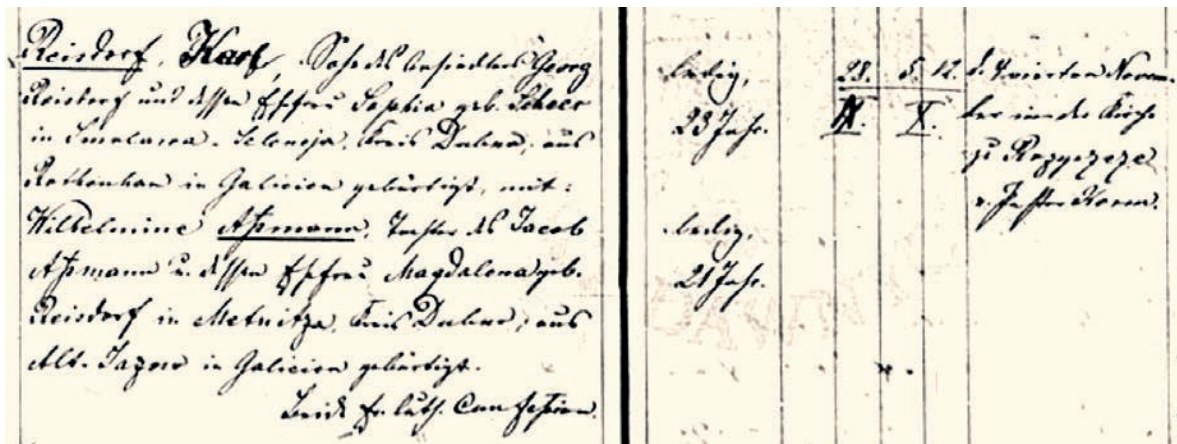 Reisdorf, Karl, Sohn des Ansiedlers Georg
Reisdorf und dessen Ehefrau Sophia geb. Scheer
in Kreis Dubno, aus
Rottenhan in Galicien gebürtigt, mit:
Wilhelmine Aßmann, Tochter des Jacob
Aßmann u. dessen Ehefrau Magdalena geb.
Reisdorf in Metnitza, Kreis Dubno, aus
Alt-Jazow in Galicien gebürtigt.
Beide ev. luth. Confession.
ledig,
23 Jahr.
ledig,
21 Jahr.
28. 5. 12.
IX. X.
d. vierten Novem-
ber in der Kirche
zu
v. Pastor